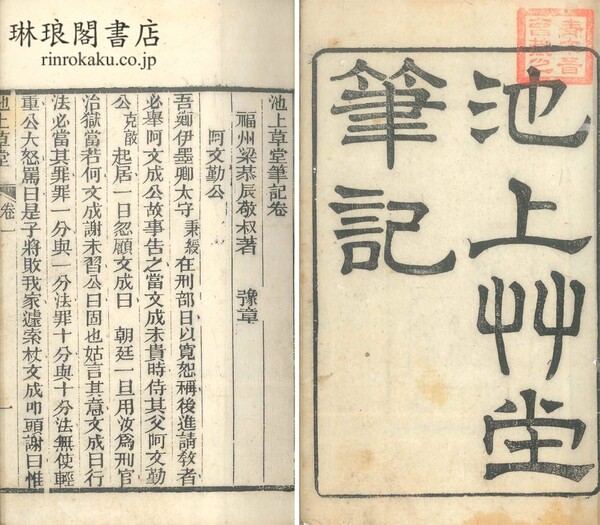 琳琅閣書店
rinrokaku.co.jp
池上艸堂
筆記
池上草堂筆記卷
福州梁恭辰敬叔著 豫章
阿文勤公
吾鄉伊墨卿太守秉綬在刑部日以寬恕稱後進請教者
必舉阿文成公故事告之當文成未貴時侍其父阿文勤
公克敦起居一日忽顧文成曰 朝廷一旦用汝爲刑官
治獄當若何文成謝未習公曰固也姑言其意文成曰行
法必當其罪罪一分與一分法罪十分與十分法無使輕
重公大怒罵曰是子將敗我家遽索杖文成叩頭謝曰惟
池上草堂 卷一 一